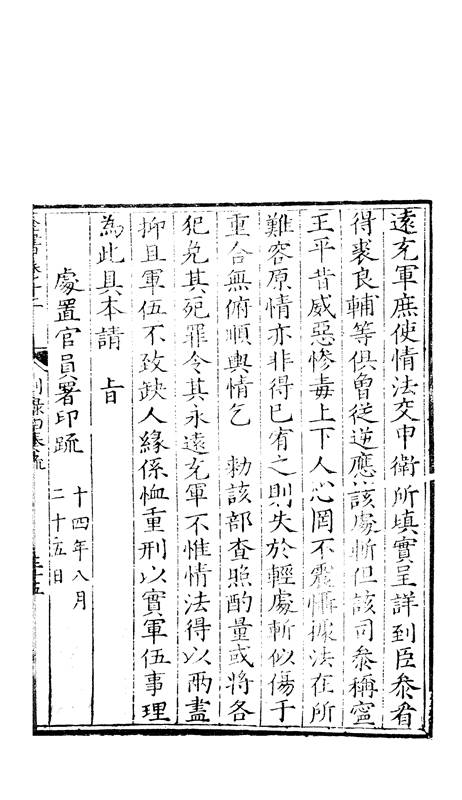 遠充軍庶使情法交申衛所填實呈詳到臣參看
得裘良輔等俱曾從逆應該處斬但該司參稱寧
王平昔威惡慘毒上下人心罔不震懾據法在所
難容原情亦非得已宥之則失於輕處斬似傷于
重合無俯順輿情乞　勅該部查照酌量或將各
犯免其死罪令其永遠充軍不惟情法得以兩盡
抑且軍伍不致缺人緣係恤重刑以實軍伍事理
為此具本請　旨
處置官員署印疏　十四年八月
二十五日
別錄四奏疏